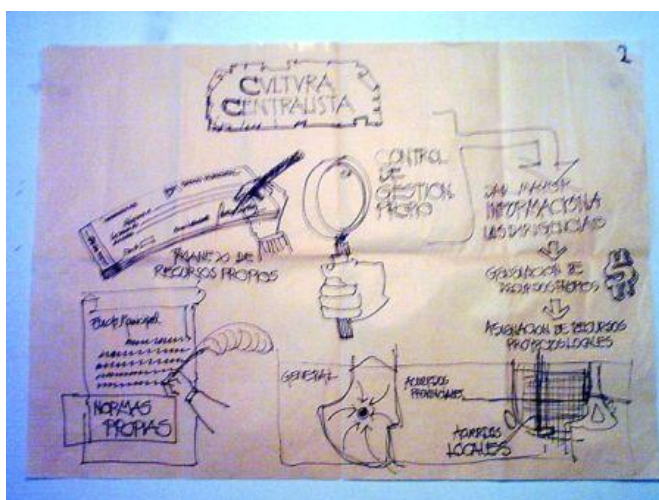 2
CULTURA
CENTRALISTA
CONTROL
DE
GESTION
PROPIO
MANEJO DE
RECURSOS PROPIOS
DAR MAYOR
INFORMACION A
LAS DIRIGENCIAS
GENERACION DE
RECURSOS PROPIOS
ASIGNACION DE RECURSOS
PROYECTOS LOCALES
NORMAS
PROPIAS
GENERAL
ACUERDOS
PROVINCIALES
ACUERDOS
LOCALES